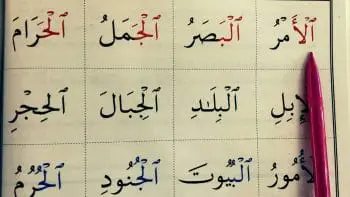 ٱلْأَمْرُ ٱلْبَصَرُ ٱلْجَمَلُ ٱلْحَرَامَ
ٱلْإِبِلِ ٱلْبِلَـٰدِ ٱلْجِبَالَ ٱلْحِجْرِ
ٱلْأُمُورُ ٱلْبُيُوتَ ٱلْجُنُودِ ٱلْحُرُمُ